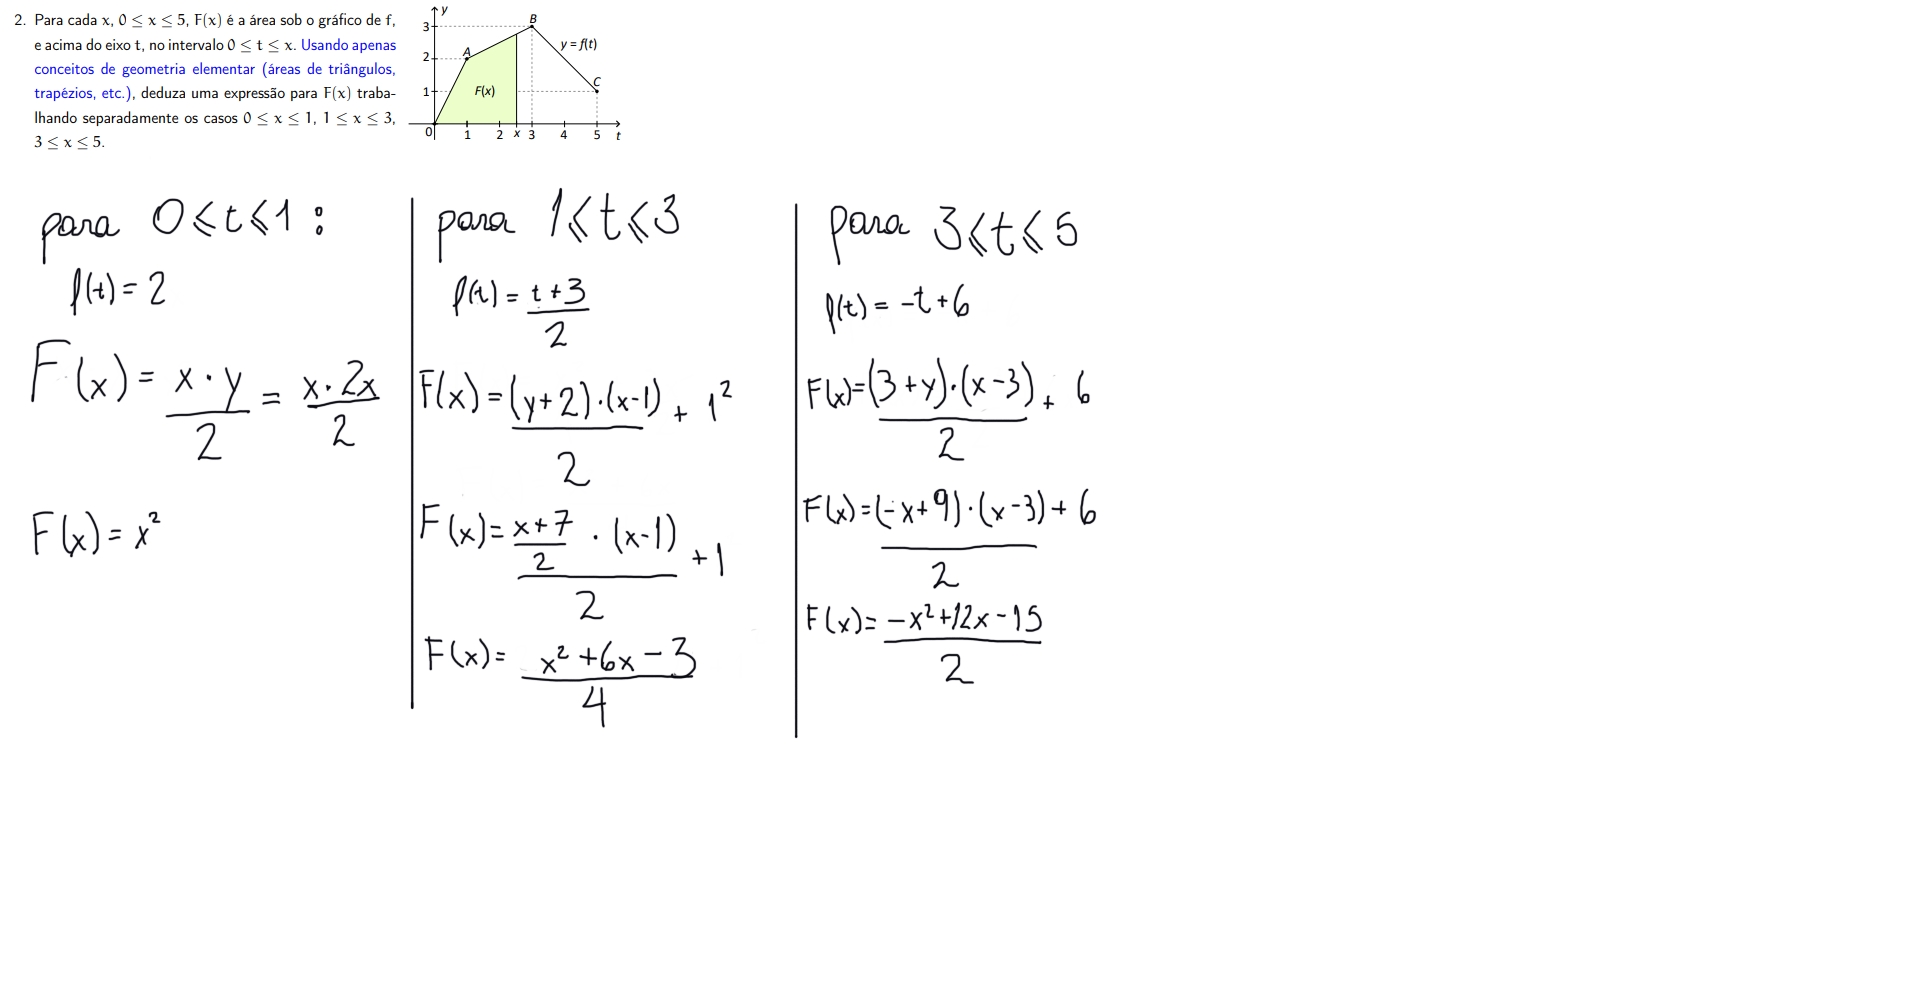 2. Para cada x, 0 ≤ x ≤ 5, F(x) é a área sob o gráfico de f,
e acima do eixo t, no intervalo 0 ≤ t ≤ x. Usando apenas
conceitos de geometria elementar (áreas de triângulos,
trapézios, etc.), deduza uma expressão para F(x) traba-
lhando separadamente os casos 0 ≤ x ≤ 1, 1 ≤ x ≤ 3,
3 ≤ x ≤ 5.
y
3
B
A
y = f(t)
2
C
1
F(x)
0 1 2 x 3 4 5 t
para 0 ⩽ t ⩽ 1 :
f(t) = 2
F(x) = x · y / 2 = x · 2x / 2
F(x) = x²
para 1 ⩽ t ⩽ 3
f(t) = t + 3 / 2
F(x) = (y + 2) · (x - 1) / 2 + 1²
F(x) = x + 7 / 2 · (x - 1) / 2 + 1
F(x) = x² + 6x - 3 / 4
para 3 ⩽ t ⩽ 5
f(t) = -t + 6
F(x) = (3 + y) · (x - 3) / 2 + 6
F(x) = (-x + 9) · (x - 3) / 2 + 6
F(x) = -x² + 12x - 15 / 2